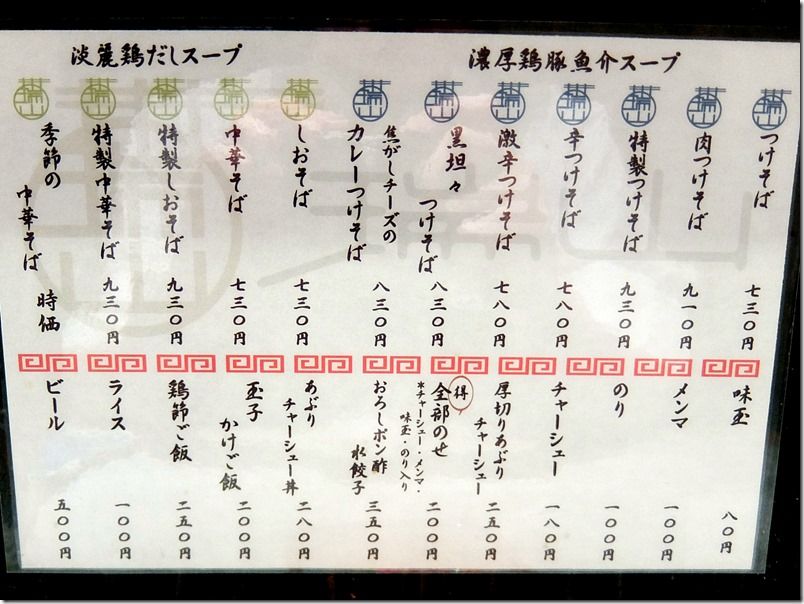 濃厚鶏豚魚介スープ
つけそば 七三〇円
肉つけそば 九一〇円
特製つけそば 九三〇円
辛つけそば 七八〇円
激辛つけそば 七八〇円
黒坦々
つけそば 八三〇円
焦がしチーズの
カレーつけそば 八三〇円
淡麗鶏だしスープ
しおそば 七三〇円
中華そば 七三〇円
特製しおそば 九三〇円
特製中華そば 九三〇円
季節の
中華そば 時価
味玉 八〇円
メンマ 一〇〇円
のり 一〇〇円
チャーシュー 一八〇円
厚切りあぶり
チャーシュー 二五〇円
得
全部のせ 二〇〇円
*チャーシュー・メンマ・
味玉・のり入り
おろしポン酢
水餃子 三五〇円
あぶり
チャーシュー丼 二八〇円
玉子
かけご飯 二〇〇円
鶏節ご飯 二五〇円
ライス 一〇〇円
ビール 五〇〇円